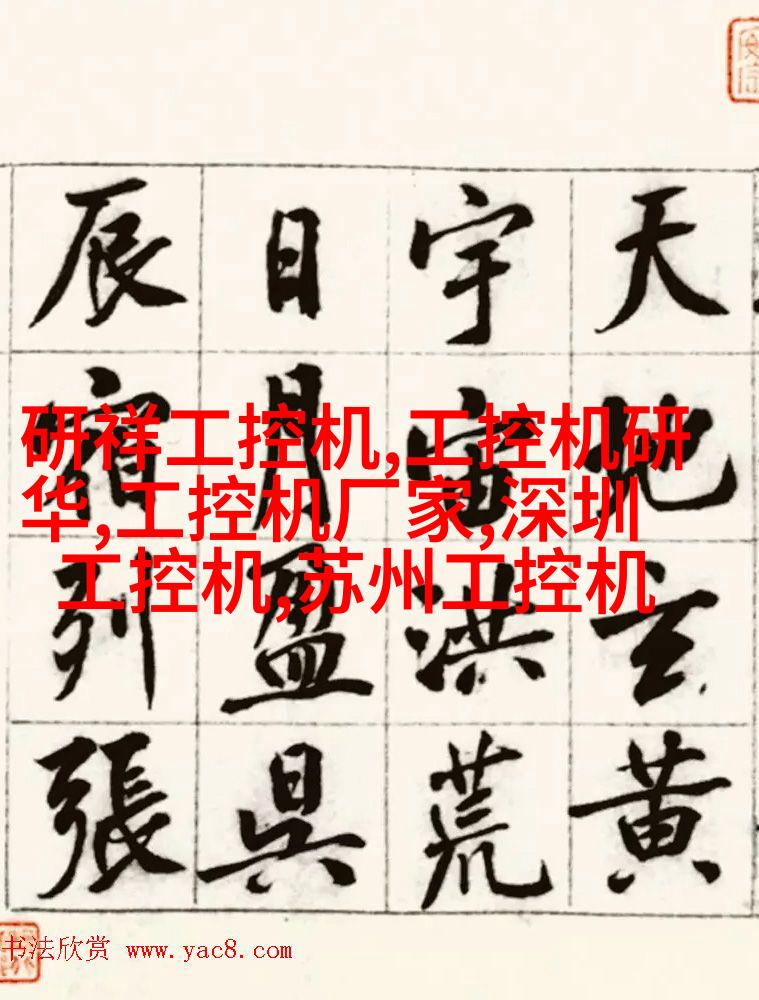 天地玄黄
宇宙洪荒
日月盈昃
辰宿列張
研祥工控机,工控机研
华,工控机厂家,深圳
工控机,苏州工控机
书法欣赏 www.yac8.com